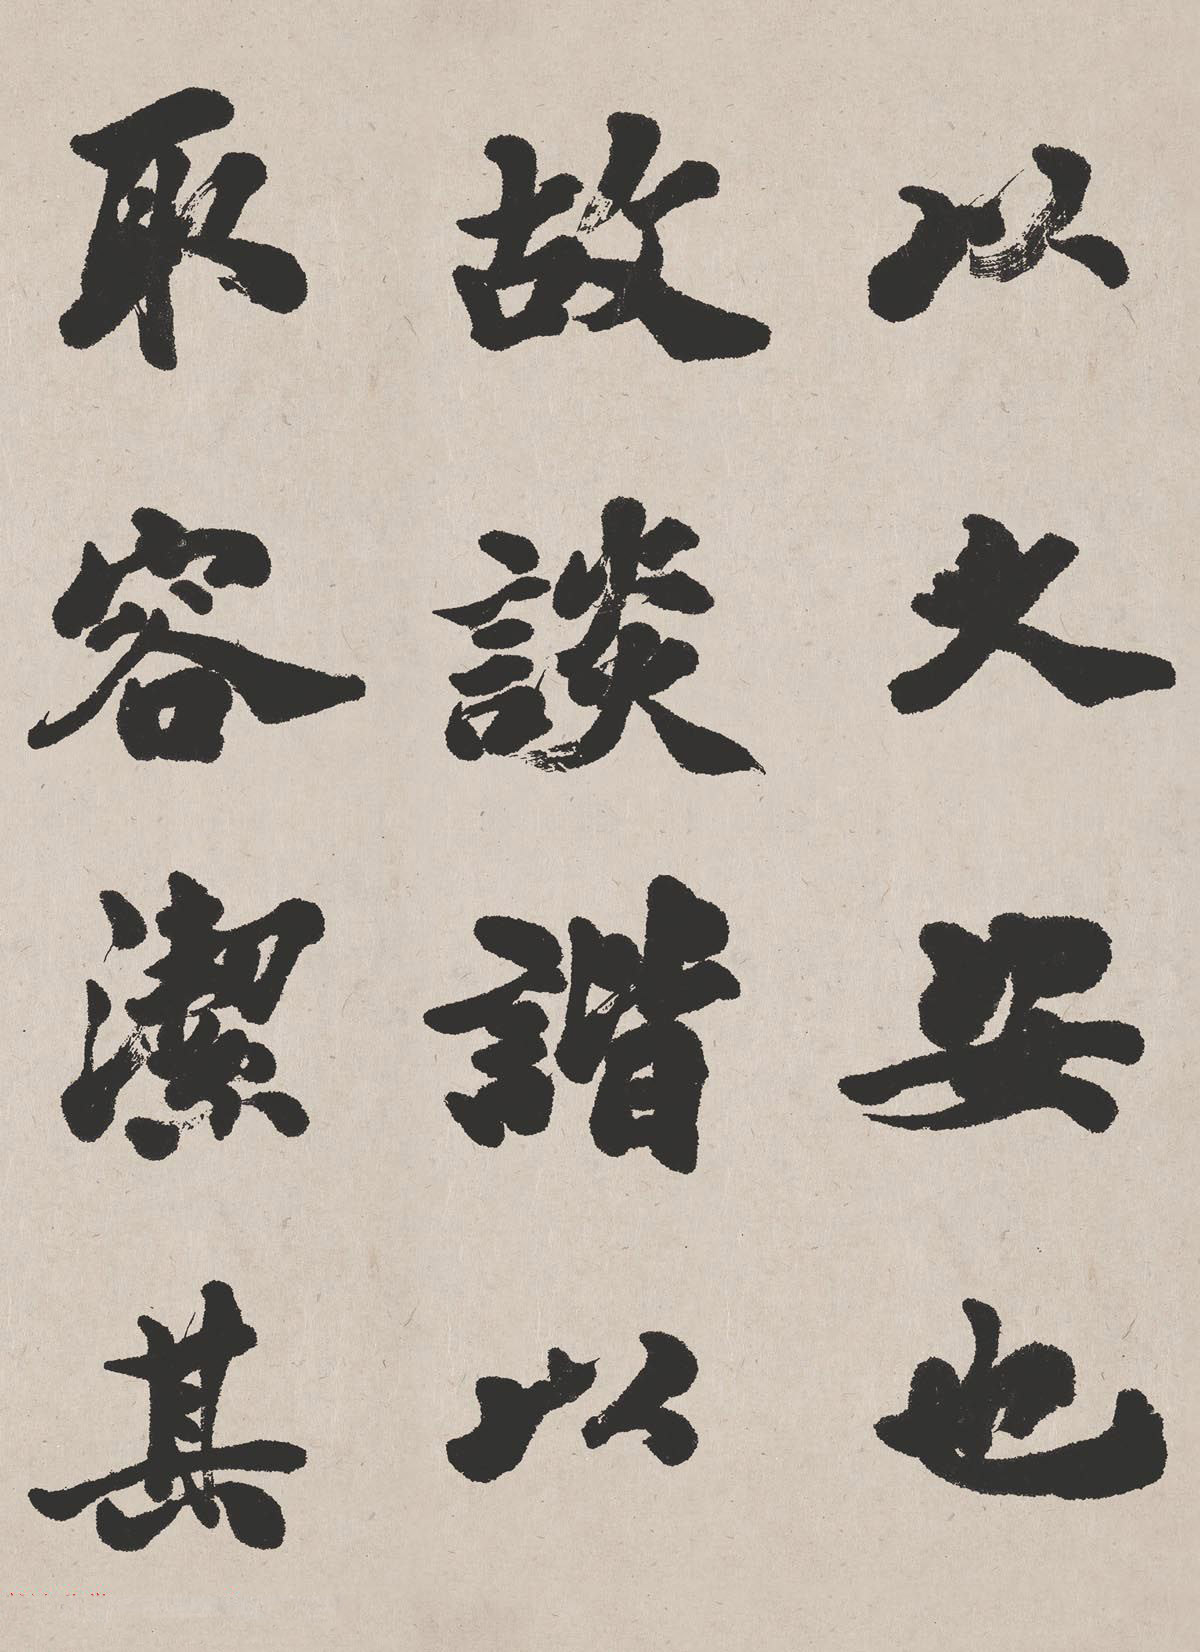 以久安也
故談諧以
取容潔其